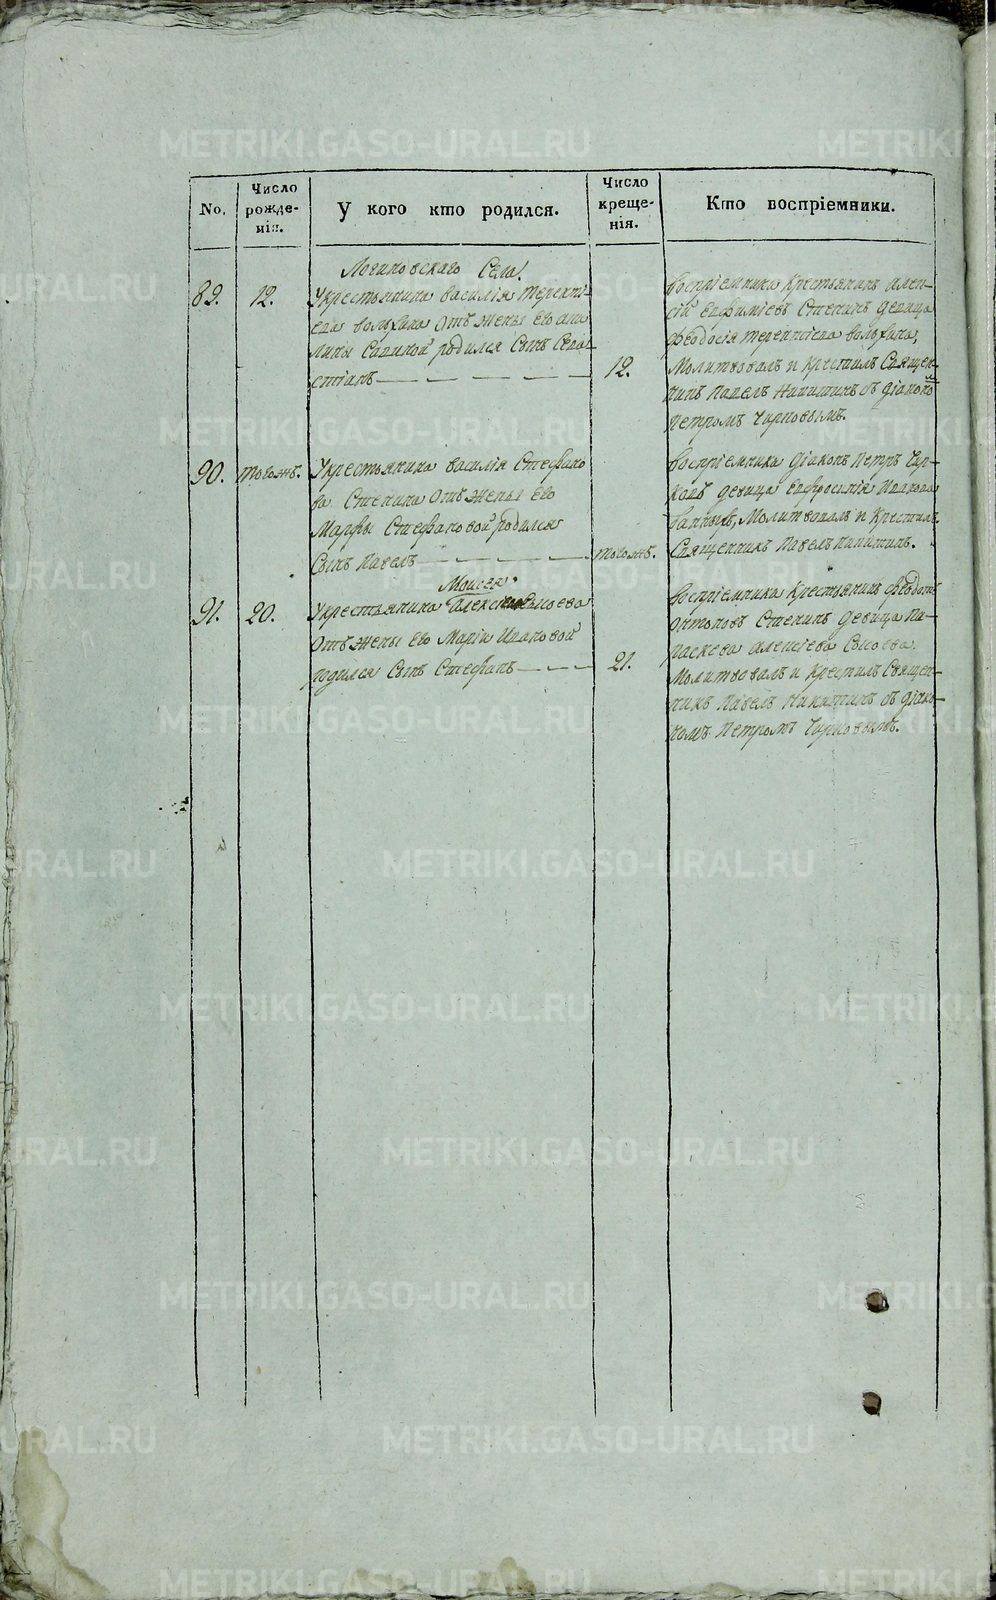 No.
Число рожде-
нія.
У кого кто родился.
Число креще-
нія.
Кто воспріемники.
Логиновскаго Села
89.
12.
Укрестьянина василія терентi-
ева вольхина отъ жены Его
Савиной родился Сынъ Сева-
стіянъ
12.
воспріемники Крестьянинъ алек-
сій Ефиміевъ Степинъ девица
феодосія терентіева вольхина,
Молитвовалъ и Крестилъ Священ-
никъ Павелъ Никитинъ съ діаконо
Петромъ Чирковымъ.
90.
тогожъ.
Укрестьянина василія Стефано
ва Степина отъ жены Его
Марфы Стефановой родился
Сынъ Павелъ
тогожъ.
воспріемники діаконъ Петръ Чир-
ковъ девица Евфросинія Иванова
Молитвовалъ и Крестилъ
Священникъ Павелъ Никитинъ.
91.
20.
Моисея
Укрестьянина Алексіева
отъ жены Его Маріи Ивановой
родился Сынъ Стефанъ
21.
воспріемники Крестьянинъ Феодотъ
Степинъ девица Па-
раскева алексіева
Молитвовалъ и Крестилъ Священ-
никъ Павелъ Никитинъ съ діако-
номъ Петромъ Чирковымъ.
METRIKI.GASO-URAL.RU